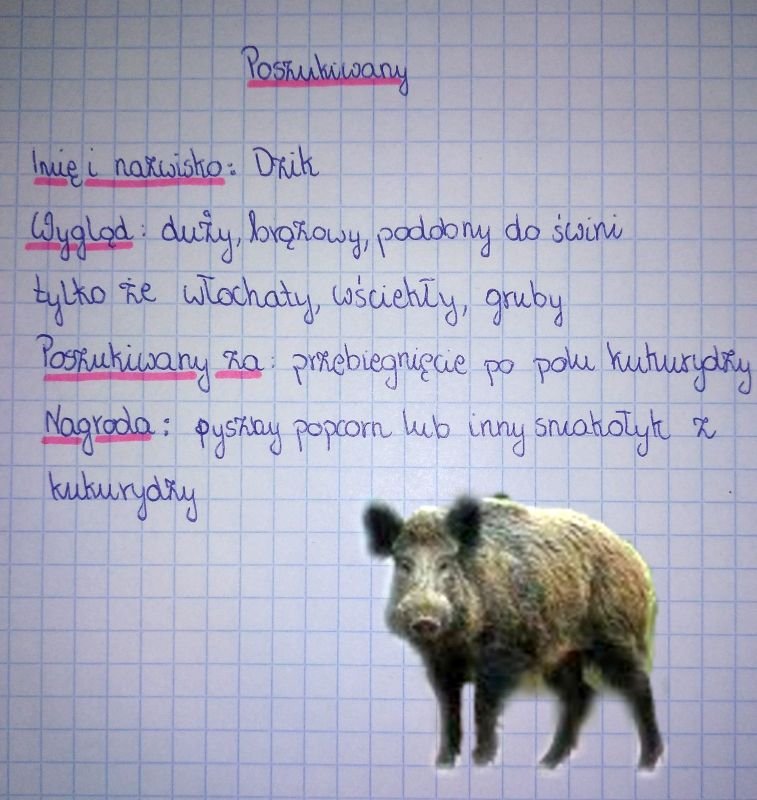 Poszukiwany
Imię i nazwisko: Dzik
Wygląd: duży, brązowy, podobny do świni
tylko że włochaty, wściekły, gruby
Poszukiwany za: przebiegnięcie po polu kukurydzy
Nagroda: pyszny popcorn lub inny smakołyk z
kukurydzy